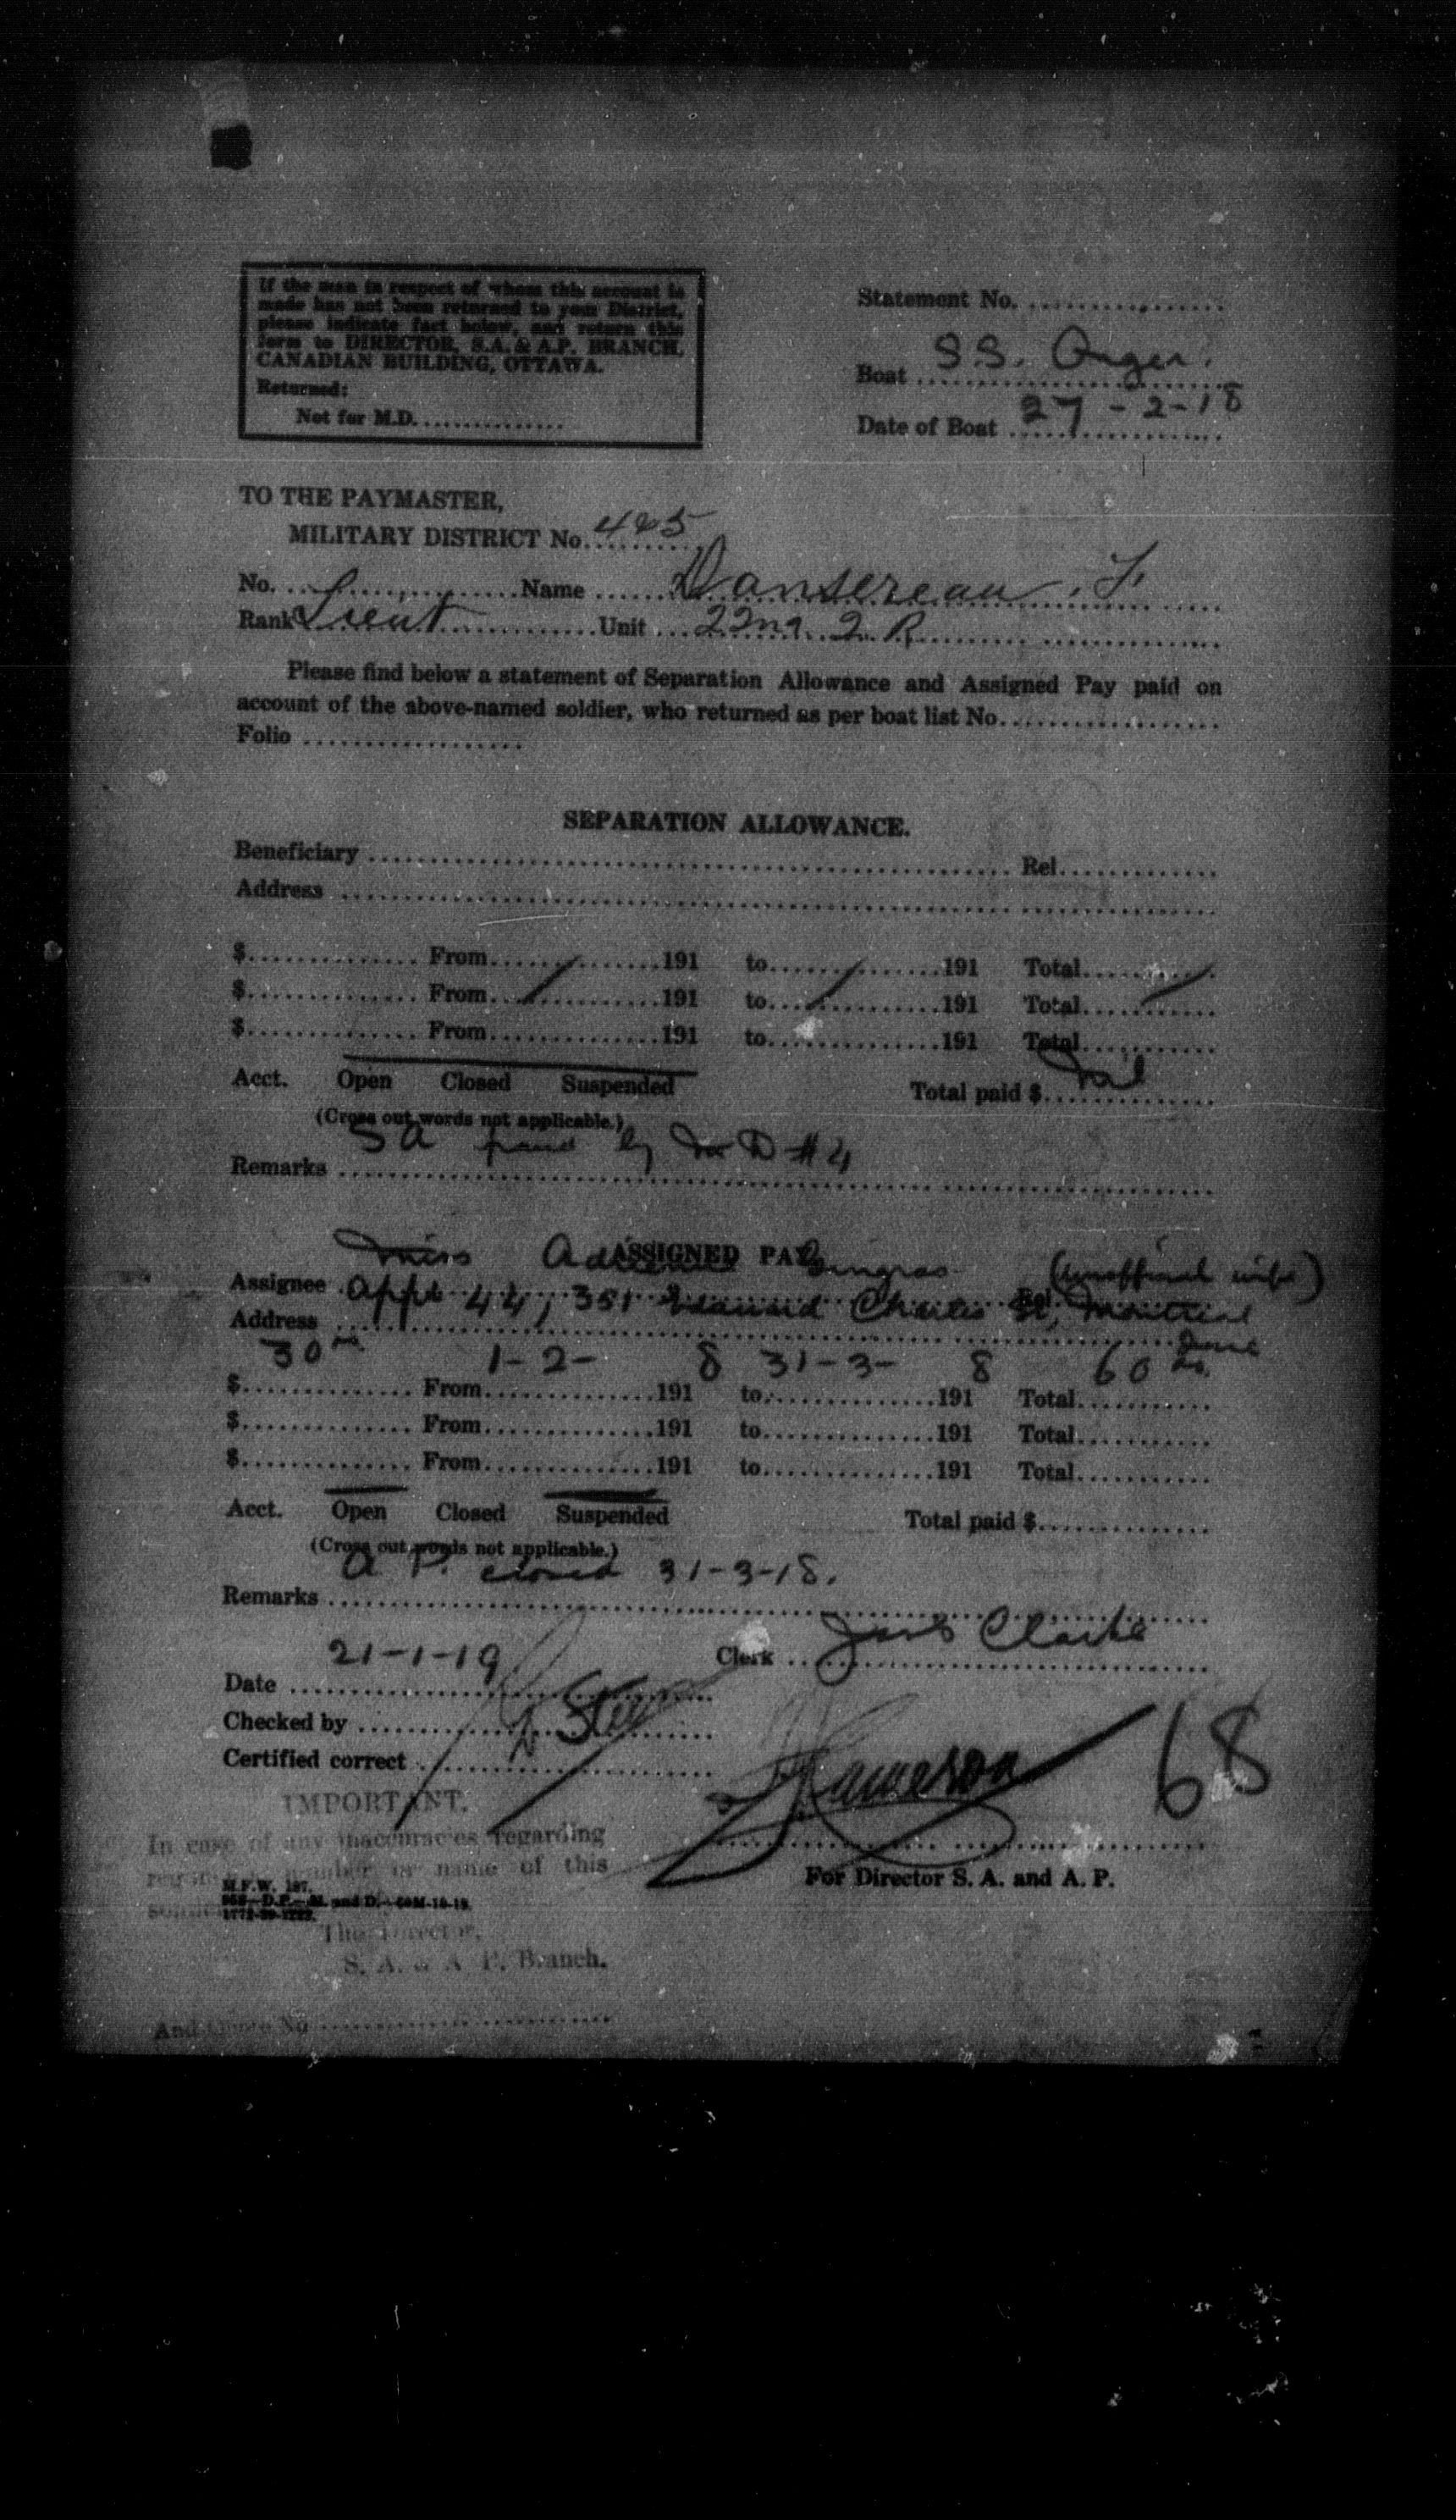 If the man in respect of whom this account is
made has not been returned to your District,
please indicate fact below, and return this
form to DIRECTOR, S.A. & A.P. BRANCH,
CANADIAN BUILDING, OTTAWA.
Returned:
Not for M.D. ...............
Statement No. ..................
Boat S.S.
Date of Boat 27-2-18
TO THE PAYMASTER,
MILITARY DISTRICT No.
No. .................. Name Dansereau. F.
Rank Lieut Unit 22nd
Please find below a statement of Separation Allowance and Assigned Pay paid on
account of the above-named soldier, who returned as per boat list No. ..................
Folio ..................
SEPARATION ALLOWANCE.
Beneficiary .................. Rel. .............
Address ..................
$.............. From..............191 to..............191 Total............
$.............. From..............191 to..............191 Total............
$.............. From..............191 to..............191 Total............
Acct. Open Closed Suspended Total paid $ Nil
(Cross out words not applicable.)
Remarks S A paid by M D #4
ASSIGNED PAY
Assignee Miss Gingras Rel. (Unofficial wife)
Address Appt 44, 351 Charles St, Montreal
$ 30 From 1-2- 1918 to 31-3- 1918 Total 60
$.............. From..............191 to..............191 Total............
$.............. From..............191 to..............191 Total............
Acct. Open Closed Suspended Total paid $..............
(Cross out words not applicable.)
Remarks A P. closed 31-3-18.
Date 21-1-19 Clerk Clarke
Checked by
Certified correct
68
For Director S. A. and A. P.
IMPORTANT.
In case of any inaccuracies regarding
number or name of this
M.F.W. 187.
The Director,
S. A. & A. P. Branch.
And Quote No ..................